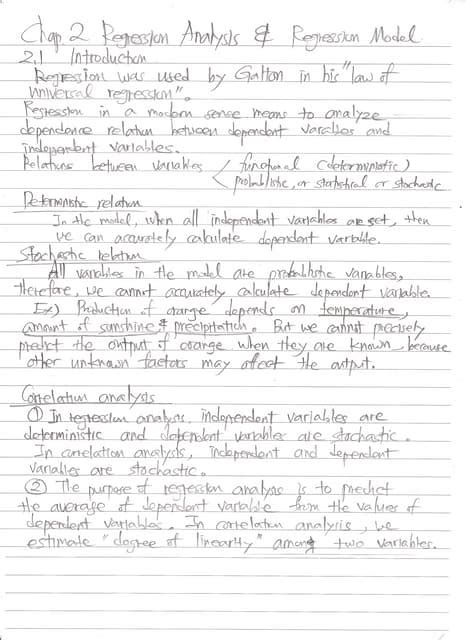 Chap 2 Regression Analysis & Regression Model
2.1 Introduction
Regression was used by Galton in his "law of
universal regression".
Regression in a modern sense means to analyze
dependence relation between dependent variables and
independent variables.
Relations between variables < functional (deterministic)
probablistic, or statistical or stochastic
Deterministic relation
In the model, when all independent variables are set, then
we can accurately calculate dependent variable.
Stochastic relation
All variables in the model are probablistic variables,
therefore, we cannot accurately calculate dependent variable.
Ex) Production of orange depends on temperature,
amount of sunshine & precipitation. But we cannot precisely
predict the output of orange when they are known, because
other unknown factors may affect the output.
Correlation analysis
① In regression analysis, independent variables are
deterministic and dependent variables are stochastic.
In correlation analysis, independent and dependent
variables are stochastic.
② The purpose of regression analysis is to predict
the average of dependent variable from the values of
dependent variables. In correlation analysis, we
estimate "degree of linearity" among two variables.